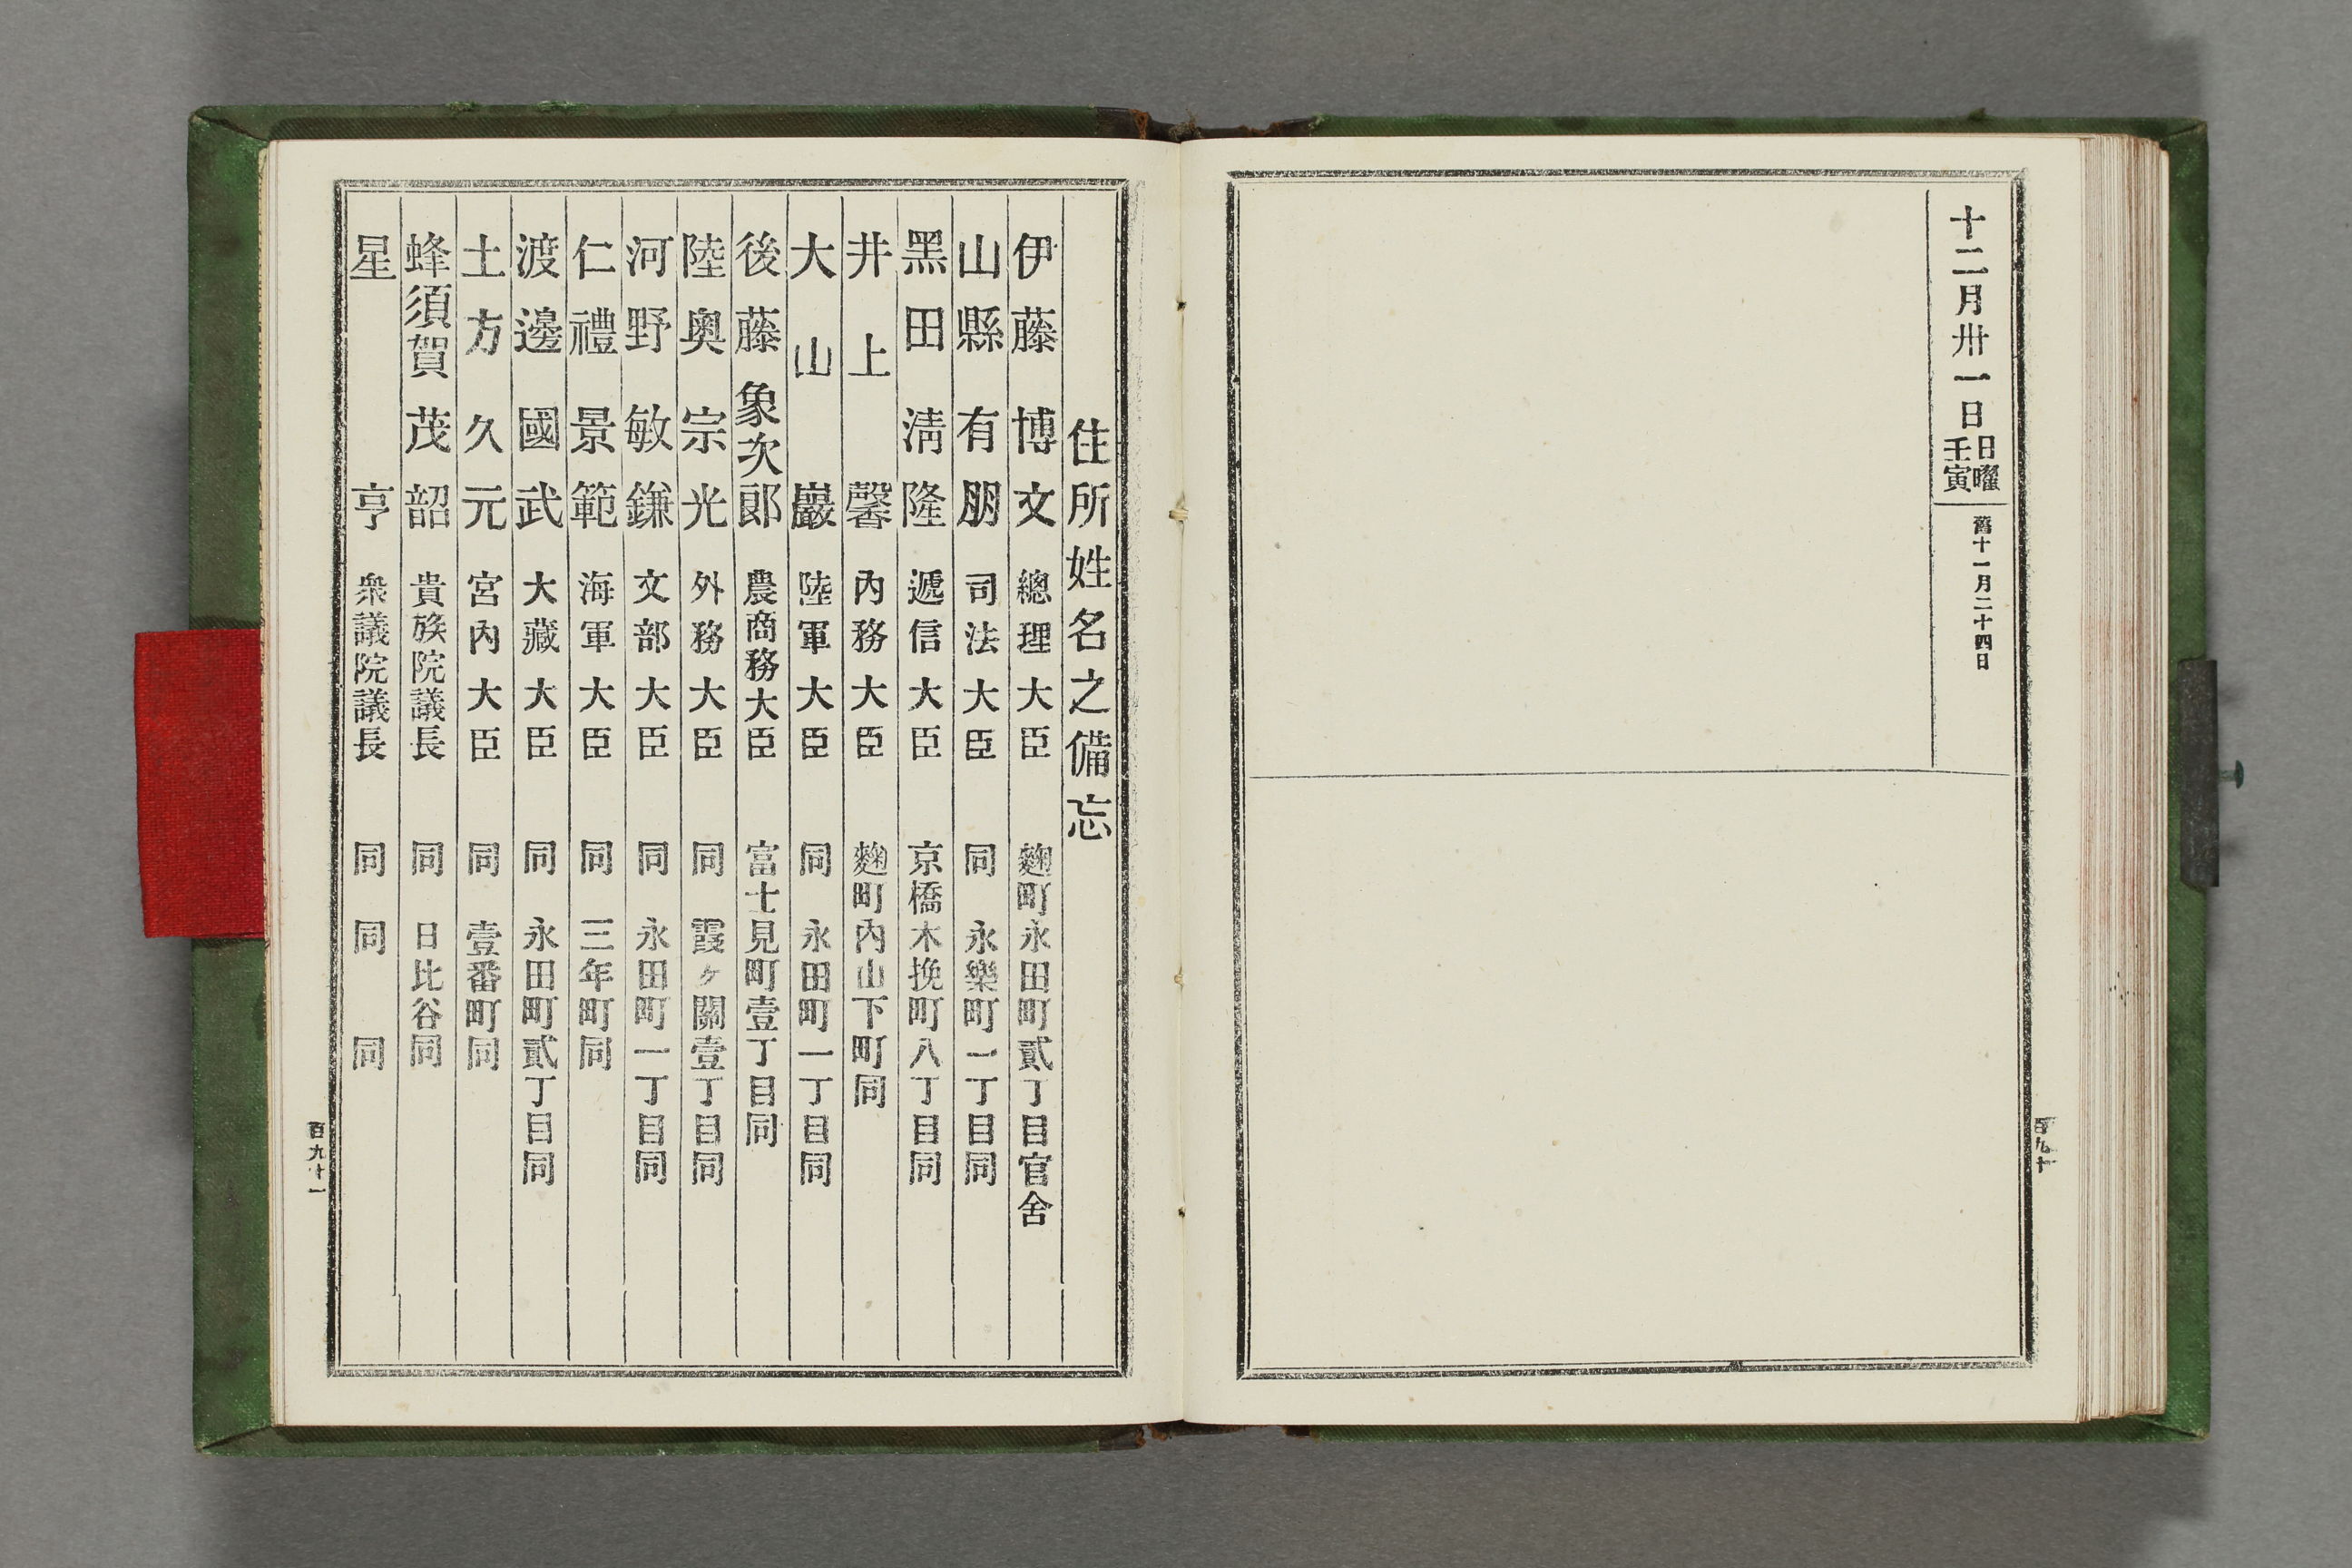 十二月卅一日 日曜 壬寅 舊十一月二十四日
百九十
住所姓名之備忘
伊藤博文 總理大臣 麴町永田町貳丁目官舍
山縣有朋 司法大臣 同 永樂町一丁目同
黑田淸隆 遞信大臣 京橋木挽町八丁目同
井上馨 內務大臣 麴町內山下町同
大山巖 陸軍大臣 同 永田町一丁目同
後藤象次郎 農商務大臣 富士見町壹丁目同
陸奧宗光 外務大臣 同 霞ヶ關壹丁目同
河野敏鎌 文部大臣 同 永田町一丁目同
仁禮景範 海軍大臣 同 三年町同
渡邊國武 大藏大臣 同 永田町貳丁目同
土方久元 宮內大臣 同 壹番町同
蜂須賀茂韶 貴族院議長 同 日比谷同
星亨 衆議院議長 同 同 同
百九十一